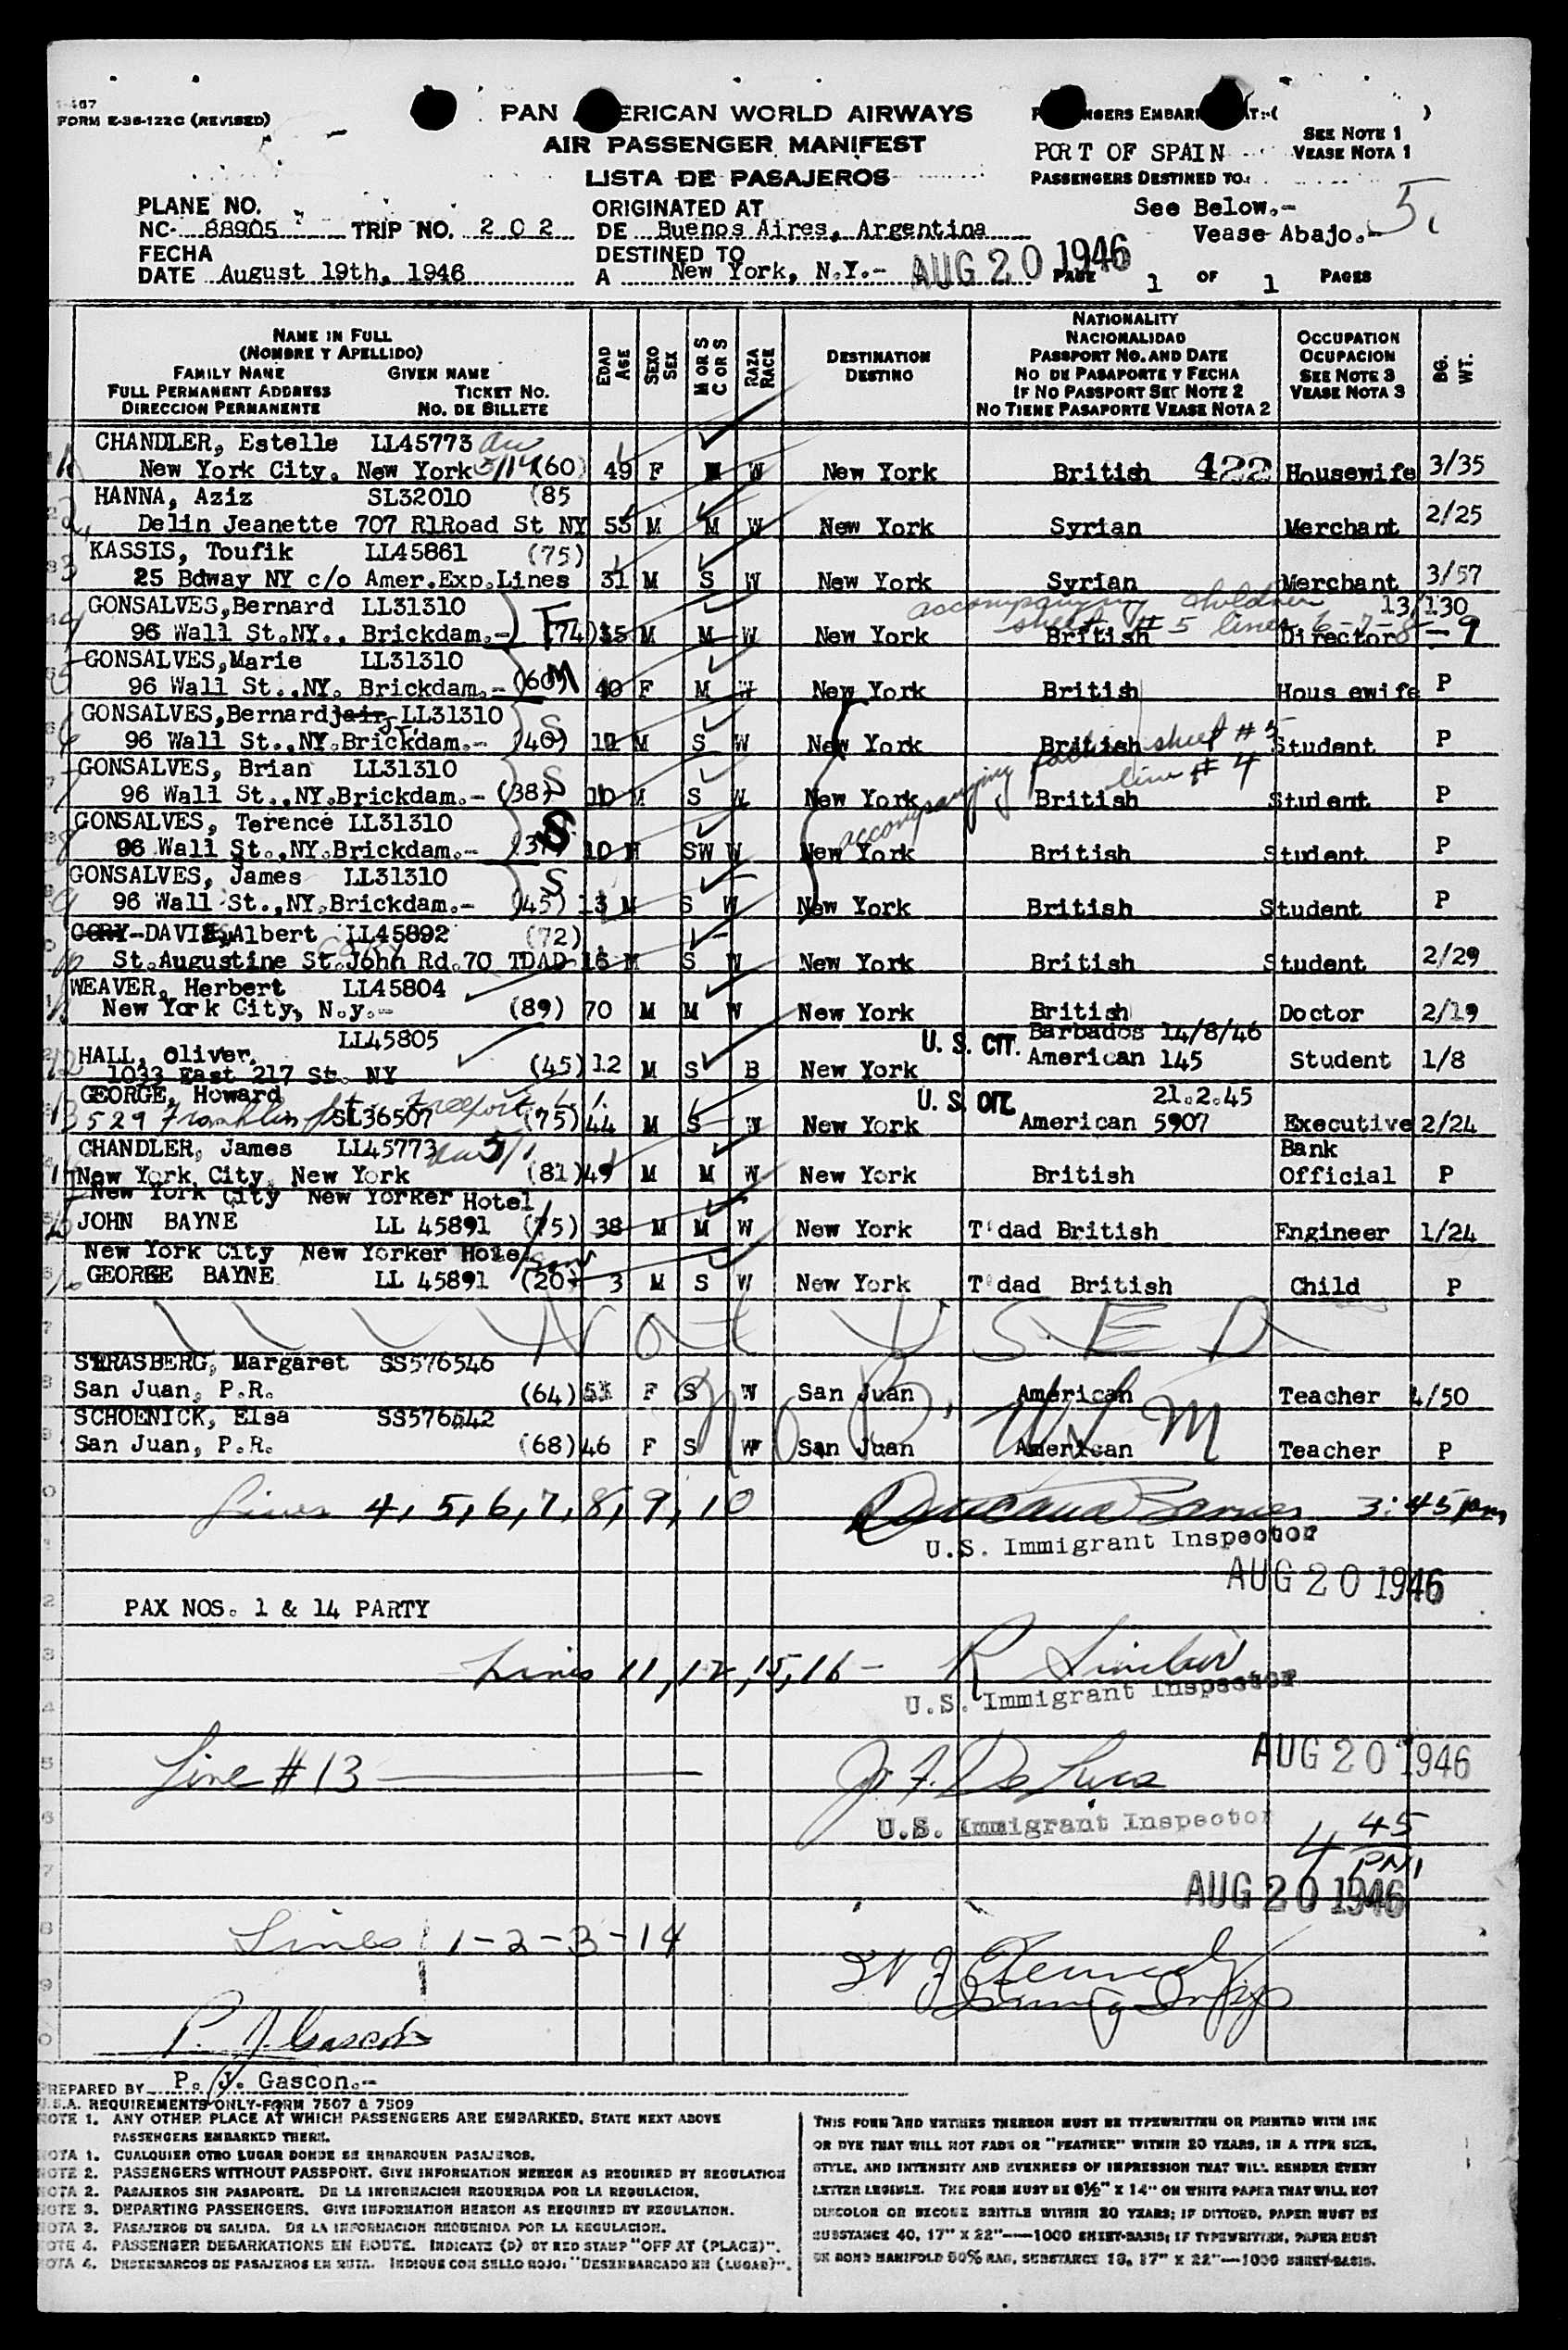 FORM E-36-122C (REVISED)
PAN AMERICAN WORLD AIRWAYS
AIR PASSENGER MANIFEST
LISTA DE PASAJEROS
SEE NOTE 1
PORT OF SPAIN
VEASE NOTA 1
PASSENGERS DESTINED TO:
See Below.-
Vease Abajo.-
5.
PLANE NO.
NC- 88905 TRIP NO. 202
FECHA
DATE August 19th, 1946
ORIGINATED AT
DE Buenos Aires, Argentina
DESTINED TO
A New York, N.Y.-
AUG 20 1946
PAGE 1 OF 1 PAGES
NAME IN FULL
(NOMBRE Y APELLIDO)
FAMILY NAME GIVEN NAME
FULL PERMANENT ADDRESS TICKET NO.
DIRECCION PERMANENTE NO. DE BILLETE
EDAD AGE
SEXO SEX
M OR S C OR S
RAZA RACE
DESTINATION
DESTINO
NATIONALITY
NACIONALIDAD
PASSPORT NO. AND DATE
NO DE PASAPORTE Y FECHA
IF NO PASSPORT SEE NOTE 2
NO TIENE PASAPORTE VEASE NOTA 2
OCCUPATION
OCUPACION
SEE NOTE 3
VEASE NOTA 3
BG. WT.
CHANDLER, Estelle LL45773
New York City, New York (60) 49 F M W New York British 422 Housewife 3/35
HANNA, Aziz SL32010 (85
Delin Jeanette 707 R1Road St NY 55 M M W New York Syrian Merchant 2/25
KASSIS, Toufik LL45861 (75)
25 Bdway NY c/o Amer.Exp.Lines 31 M S W New York Syrian Merchant 3/57
GONSALVES,Bernard LL31310 accompanying children 13/130
sheet #5 lines 6-7-8-9
96 Wall St.NY., Brickdam.- F (74) M M W New York British Director
GONSALVES,Marie LL31310
96 Wall St.,NY. Brickdam.- (60) M 40 F M W New York British Housewife P
GONSALVES,Bernard LL31310 S
96 Wall St.,NY.Brickdam.- (40) M S W New York British Student P
accompanying father sheet #5
line #4
GONSALVES, Brian LL31310 S
96 Wall St.,NY.Brickdam.- (38) 10 M S W New York British Student P
GONSALVES, Terence LL31310 S
96 Wall St.,NY.Brickdam.- 10 M SW W New York British Student P
GONSALVES, James LL31310 S
96 Wall St.,NY.Brickdam.- (45) 13 M S W New York British Student P
CORY-DAVIES,Albert LL45892 (72)
St.Augustine St.John Rd.70 TDAD 16 M S W New York British Student 2/29
WEAVER, Herbert LL45804
New York City, N.y.- (89) 70 M M W New York British Doctor 2/19
LL45805 U.S. CIT. Barbados 14/8/46
HALL, Oliver. (45) 12 M S B New York American 145 Student 1/8
1033 East 217 St. NY
GEORGE, Howard U.S. CIT. 21.2.45
529 Franklin St. Freeport L.I. SL36507 (75) 44 M S W New York American 5907 Executive 2/24
CHANDLER, James LL45773 Bank
New York City, New York (81) 49 M M W New York British Official P
New York City New Yorker Hotel
JOHN BAYNE LL 45891 (75) 38 M M W New York T'dad British Engineer 1/24
New York City New Yorker Hotel
GEORGE BAYNE LL 45891 (20) 3 M S W New York T'dad British Child P
Not USED
STRASBERG, Margaret SS576546
San Juan, P.R. (64) F S W San Juan American Teacher 4/50
SCHOENICK, Elsa SS576542
San Juan, P.R. (68) 46 F S W San Juan American Teacher P
Lines 4,5,6,7,8,9,10 3:45pm
U.S. Immigrant Inspector
AUG 20 1946
PAX NOS. 1 & 14 PARTY
Lines 11,12,15,16- R Sinclair
U.S. Immigrant Inspector
AUG 20 1946
Line #13 J. F. De Luca
U.S. Immigrant Inspector
4 45
PM
AUG 20 1946
Lines 1-2-3-14
Kennedy
P. J. Gascon
PREPARED BY P. J. Gascon.-
U.S.A. REQUIREMENTS ONLY-FORM 7507 & 7509
NOTE 1. ANY OTHER PLACE AT WHICH PASSENGERS ARE EMBARKED, STATE NEXT ABOVE
PASSENGERS EMBARKED THERE.
NOTA 1. CUALQUIER OTRO LUGAR DONDE SE EMBARQUEN PASAJEROS.
NOTE 2. PASSENGERS WITHOUT PASSPORT. GIVE INFORMATION HEREON AS REQUIRED BY REGULATION
NOTA 2. PASAJEROS SIN PASAPORTE. DE LA INFORMACION REQUERIDA POR LA REGULACION.
NOTE 3. DEPARTING PASSENGERS. GIVE INFORMATION HEREON AS REQUIRED BY REGULATION.
NOTA 3. PASAJEROS DE SALIDA. DE LA INFORMACION REQUERIDA POR LA REGULACION.
NOTE 4. PASSENGER DEBARKATIONS EN ROUTE. INDICATE (D) BY RED STAMP "OFF AT (PLACE)".
NOTA 4. DESEMBARCOS DE PASAJEROS EN RUTA. INDIQUE CON SELLO ROJO: "DESEMBARCADO EN (LUGAR)".
THIS FORM AND ENTRIES THEREON MUST BE TYPEWRITTEN OR PRINTED WITH INK
OR DYE THAT WILL NOT FADE OR "FEATHER" WITHIN 20 YEARS, IN A TYPE SIZE,
STYLE, AND INTENSITY AND EVENNESS OF IMPRESSION THAT WILL RENDER EVERY
LETTER LEGIBLE. THE FORM MUST BE 8½" X 14" ON WHITE PAPER THAT WILL NOT
DISCOLOR OR BECOME BRITTLE WITHIN 20 YEARS; IF DITTOED, PAPER MUST BE
SUBSTANCE 40, 17" X 22"—1000 SHEET-BASIS; IF TYPEWRITTEN, PAPER MUST
BE BOND MANIFOLD 50% RAG, SUBSTANCE 16, 17" X 22"—1000 SHEET-BASIS.